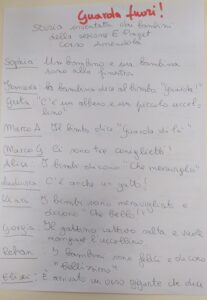 Guarda fuori!
Storia inventata dai bambini
della sezione E Puget
corso Amendola
Sophia Un bambino e una bambina
sono alla finestra
la bambina dice al bimbo "Guarda!"
Greta "C'è un albero e un piccolo uccel-
lino"
Marco A. Il bimbo dice "Guarda di là"
Marco G. Ci sono tre coniglietti!
Alice I bimbi dicono "Che meraviglia"
C'è anche un gatto!
I bimbi sono meravigliati e
dicono "Che bello!"
Giorgia Il gattino cattivo salta e vuole
mangiare l'uccellino
I bambini sono felici e dicono
"Bellissimo"
È arrivato un orso gigante che dice